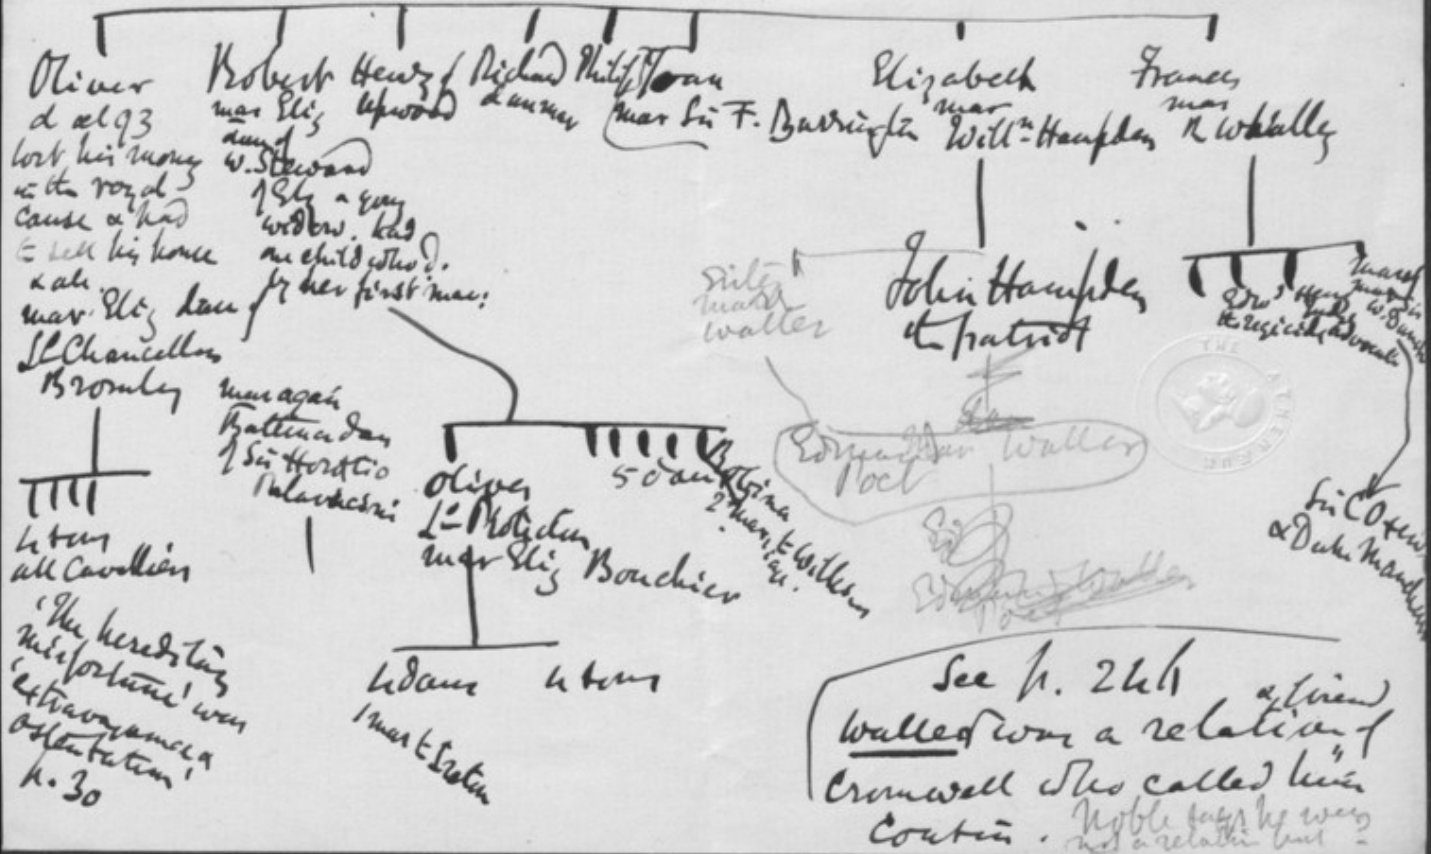 Oliver
d aet 93
lost his money
in the royal
cause & had
to sell his house
& ale.
mar. Eliz dau of
Ld Chancellor
Bromley
4 sons
all Cavaliers
'The hereditary
misfortune' was
'extravagance &
ostentation'
p. 30
Robert
mar Eliz
dau of
W. Steward
of Ely a young
widow. had
one child who d.
by her first mar:
mar again
dau
of Sir Horatio
Palavacini
Henry of
Upwood
Richard
Philip
Joan
mar Sir F. Barrington
Elizabeth
mar
Willm Hampden
Frances
mar
R Whalley
John Hampden
the patriot
mar
Waller
Edmund Waller
Poet
Edwd
the regicide
Henry
Judge
Advocate
Oliver
Ld Protector
mar Eliz Bouchier
5 dau
Robina
2 mar. to Wilkins
4 daus 4 sons
1 mar to Ireton
Sir
& Dau
THE
See p. 244
Waller was a relation & friend of
Cromwell who called him
Cousin.
Noble says he was
not a relation but